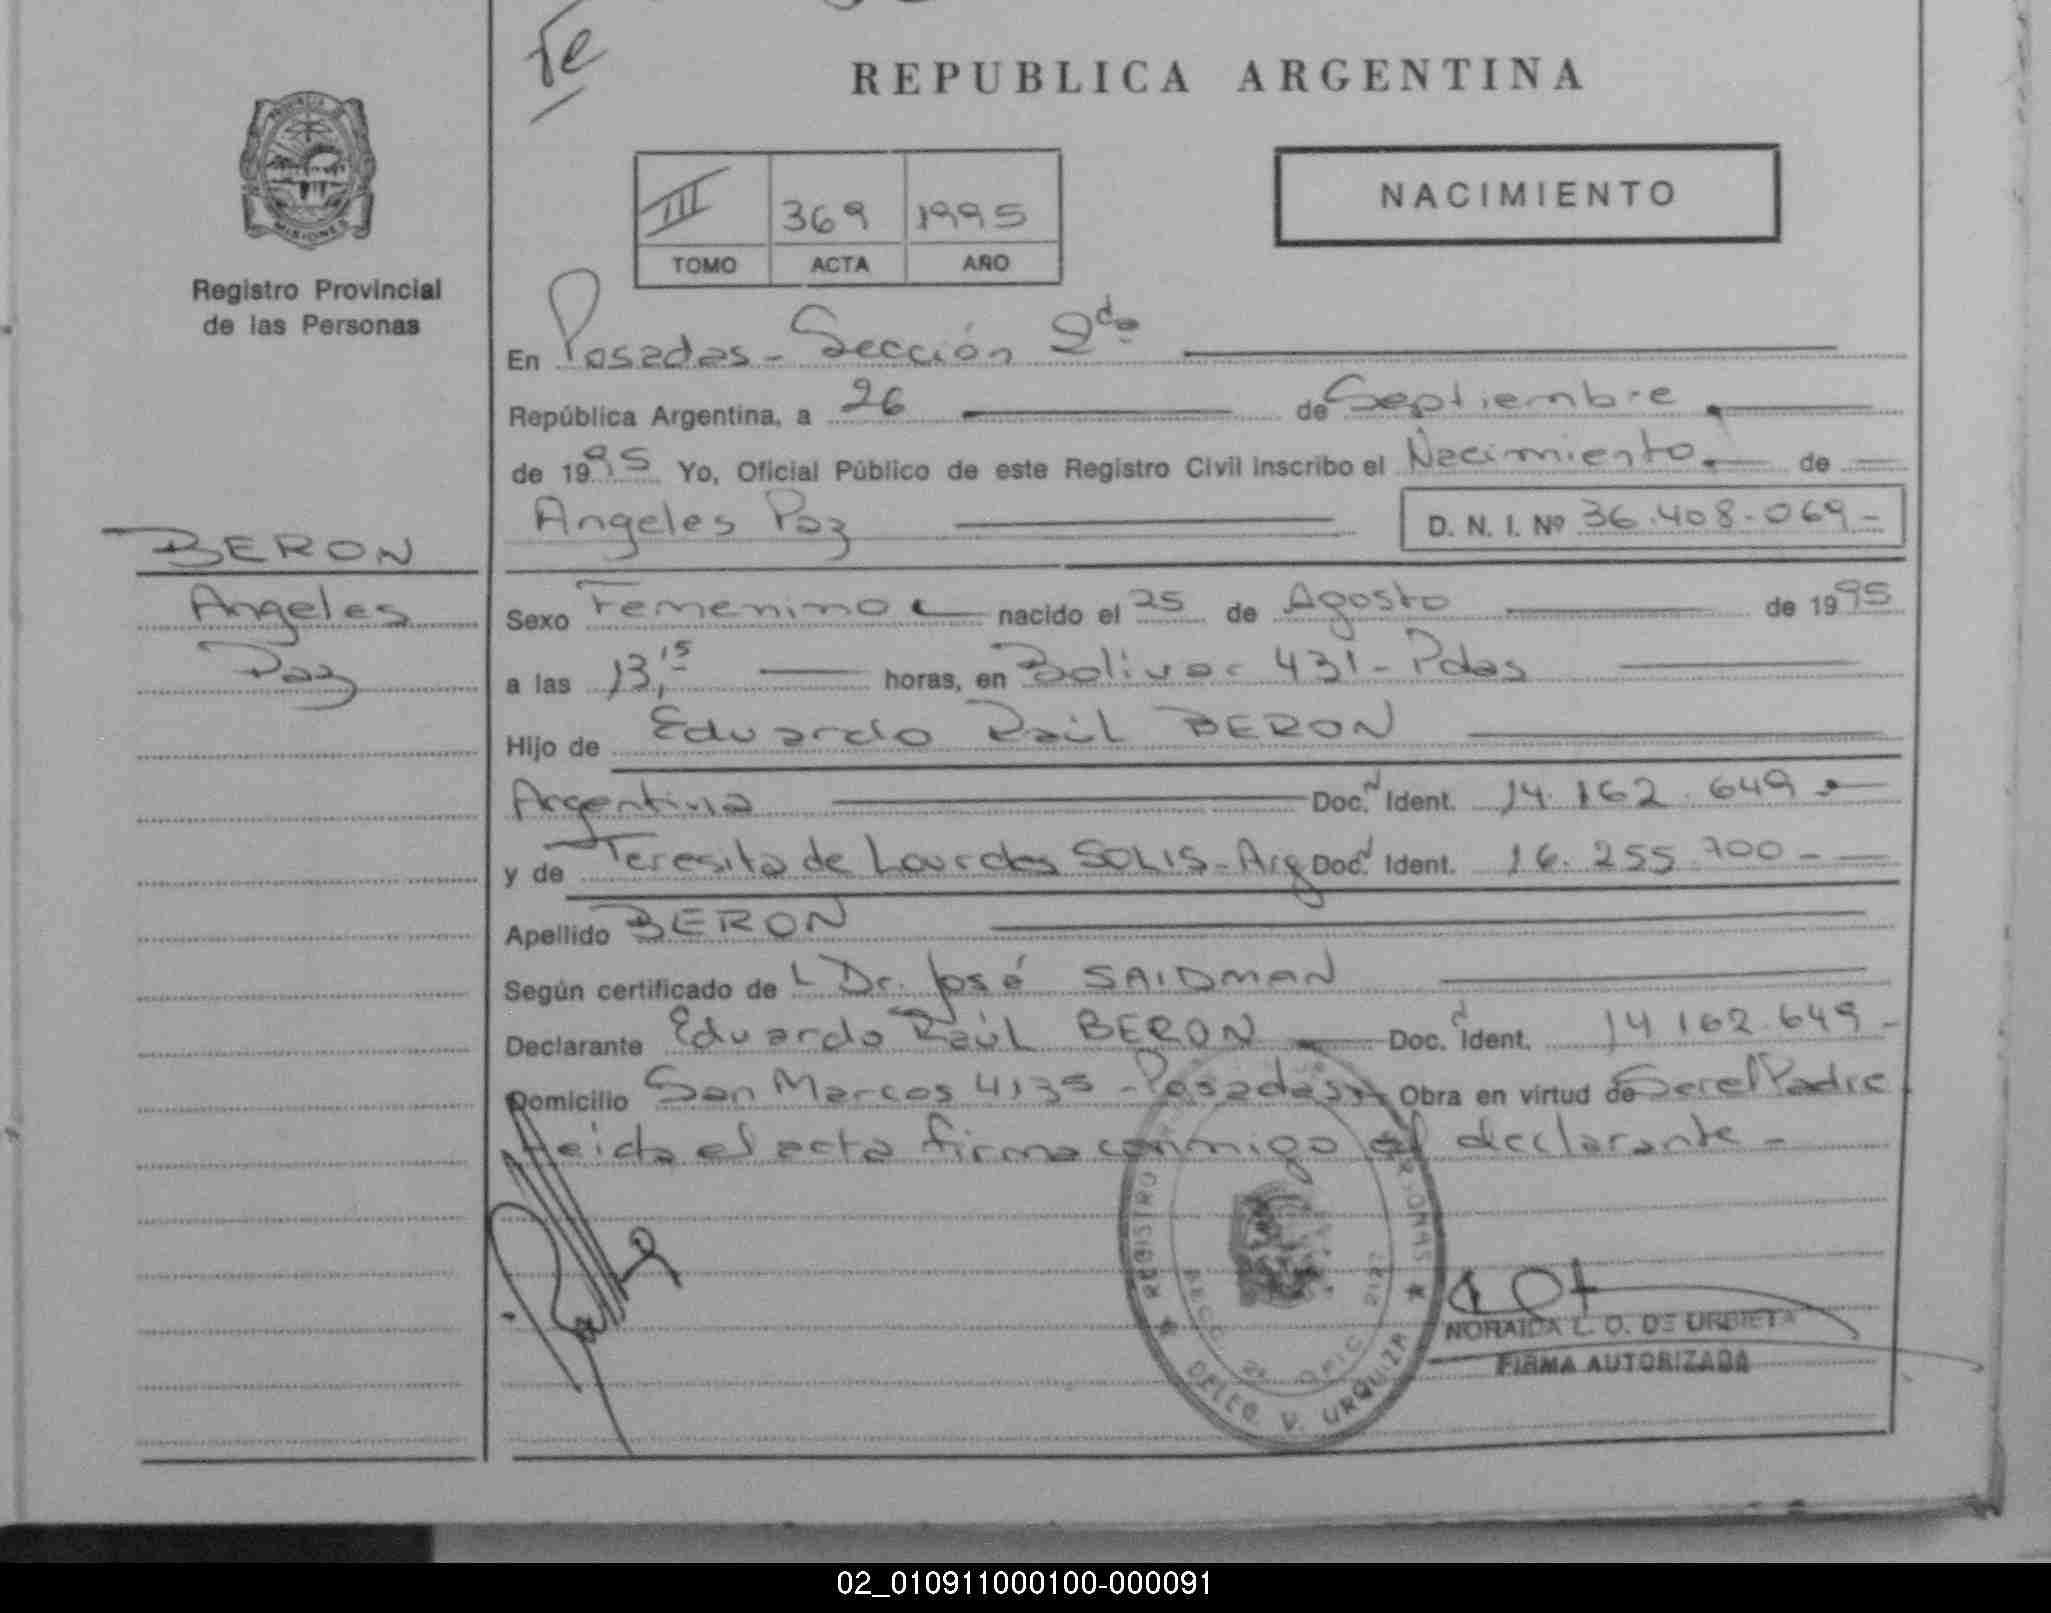 fe
REPUBLICA ARGENTINA
PROVINCIA
MISIONES
Registro Provincial
de las Personas
III 369 1995
TOMO ACTA AÑO
NACIMIENTO
En Posadas - Sección 2da
República Argentina, a 26 de Septiembre
de 1995 Yo, Oficial Público de este Registro Civil inscribo el Nacimiento de
Angeles Paz D. N. I. Nº 36.408.069-
BERON
Angeles
Paz
Sexo Femenino nacido el 25 de Agosto de 1995
a las 13,15 horas, en Bolivar 431 - Pdas
Hijo de Eduardo Raúl BERON
Argentina Doc. Ident. 14.162.649
y de Teresita de Lourdes SOLIS - Arg Doc. Ident. 16.255.700 -
Apellido BERON
Según certificado de L Dr. José SAIDMAN
Declarante Eduardo Raúl BERON Doc. Ident. 14162.649-
Domicilio San Marcos 4135 - Posadas Obra en virtud de Ser el Padre
Leida el acta firma conmigo el declarante -
REGISTRO PERSONAS
SECC. 2a OFIC. 2127
DELEG. V. URQUIZA
NORAIDA L. O. DE URBIETA
FIRMA AUTORIZADA
02_010911000100-000091